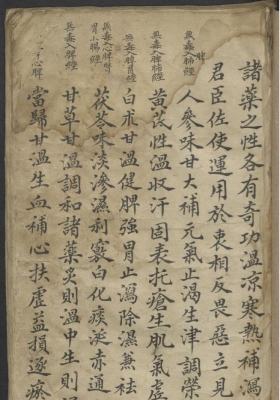 諸藥之性各有奇功溫凉寒熱補瀉
君臣佐使運用於衷相反畏惡立見
無毒入肺經
脾
人參味甘大補元氣止渴生津調榮
無毒入脾肺經
黃芪性溫収汗固表托瘡生肌氣虛
無毒入脾胃經
白朮甘溫健脾強胃止瀉除濕兼祛
無毒入心脾
胃小腸經
茯苓味淡滲濕利竅白化痰涎赤通
無毒入脾經
甘草甘溫調和諸藥炙則溫中生則
心脾
當歸甘溫生血補心扶虛益損逐瘀